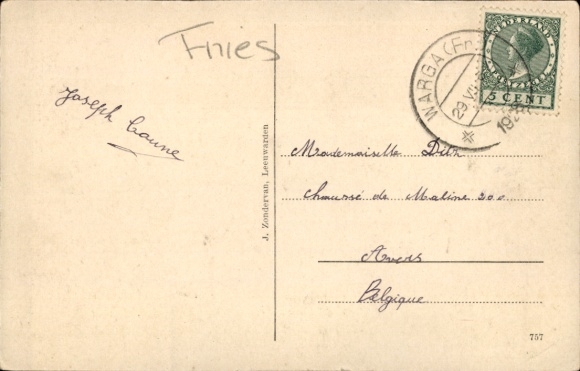 Fries
Joseph
J. Zondervan, Leeuwarden
WARGA (Fr
NEDERLAND
5 CENT
Mademoiselle Dith
Chaussé de Maline 200
Avers
Belgique
757